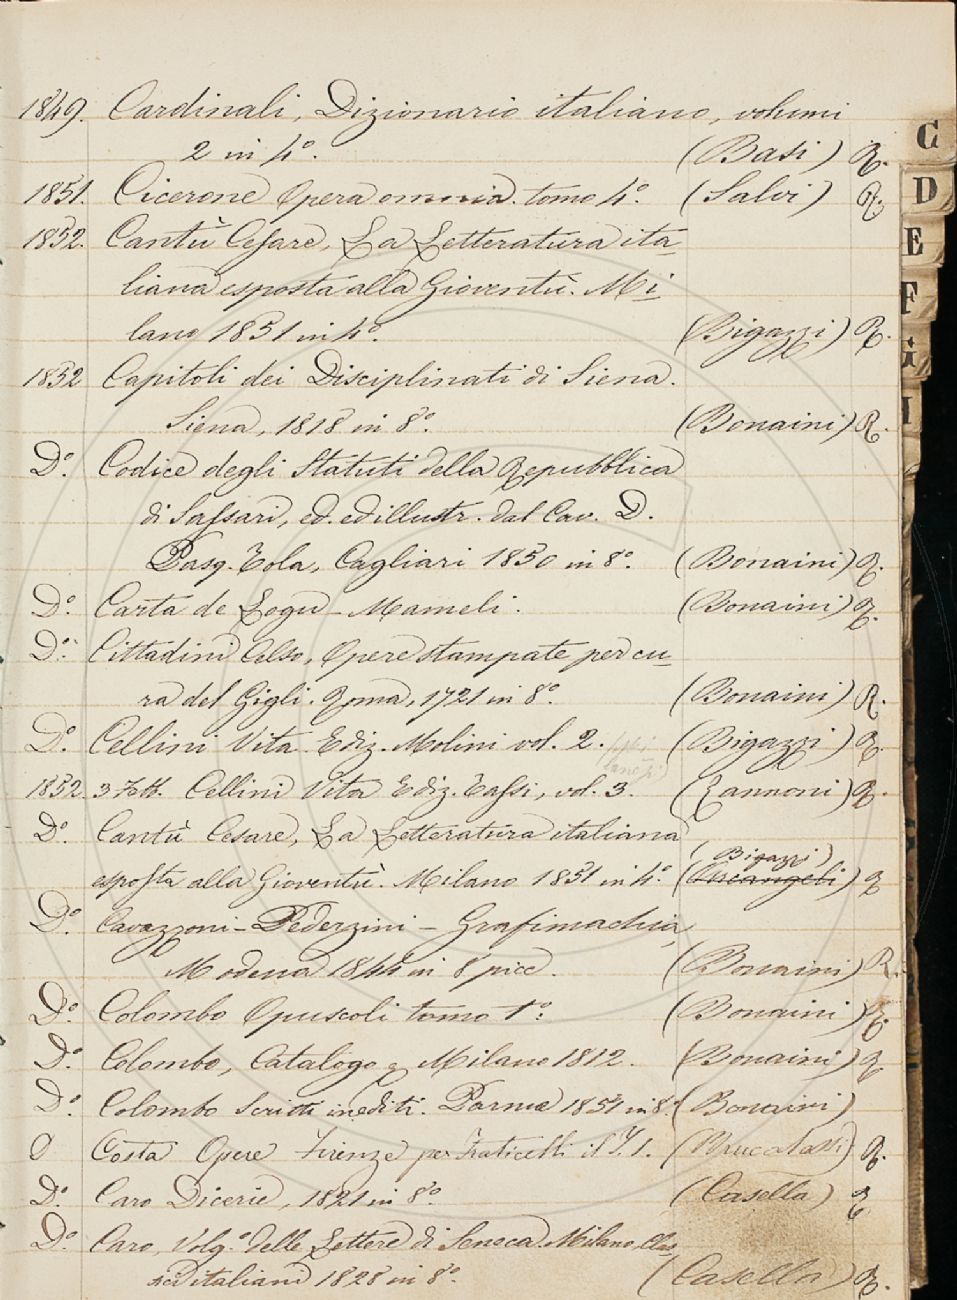 1849. Cardinali, Dizionario italiano, volumi
2 in 4º. (Basi) R.
1851. Cicerone Opera omnia. tomo 4º. (Salvi) R.
1852. Cantù Cesare, La Letteratura ita-
liana esposta alla Gioventù. Mi-
lano 1851 in 4º. (Bigazzi) R.
1852 Capitoli dei Disciplinati di Siena.
Siena, 1818 in 8º. (Bonaini) R.
Dº. Codice degli Statuti della Repubblica
di Sassari, ed. ed illustr. dal Cav. D.
Pasq. Tola, Cagliari 1850 in 8º. (Bonaini) R.
Dº. Carta de Logu - Mameli. (Bonaini) R.
Dº. Cittadini Celso, Opere stampate per cu-
ra del Gigli. Roma, 1721 in 8º. (Bonaini) R.
Dº. Cellini Vita Ediz. Molini vol. 2. (Bigazzi) R.
1852. Cellini Vita Ediz. Tassi, vol. 3. (Zannoni) R.
Dº. Cantù Cesare, La Letteratura italiana
(Bigazzi)
esposta alla Gioventù. Milano 1851 in 4º. (Arcangeli) R
Dº. Cavazzoni-Pederzini - Grafimachia,
Modena 1844 in 8 picc. (Bonaini) R.
Dº. Colombo Opuscoli tomo 1º. (Bonaini) R.
Dº. Colombo, Catalogo Milano 1812. (Bonaini) R
Dº. Colombo Scritti inediti. Parma 1851 in 8. (Bonaini)
D Costa Opere Firenze per Fraticelli il T. 1. (Brucalassi) R.
Dº. Caro Dicerie, 1821 in 8º. (Casella) R
Dº. Caro, Volg.º delle Lettere di Seneca. Milano, Clas-
sici italiani 1828 in 8º. (Casella) R.
C
D
E
F
G
I